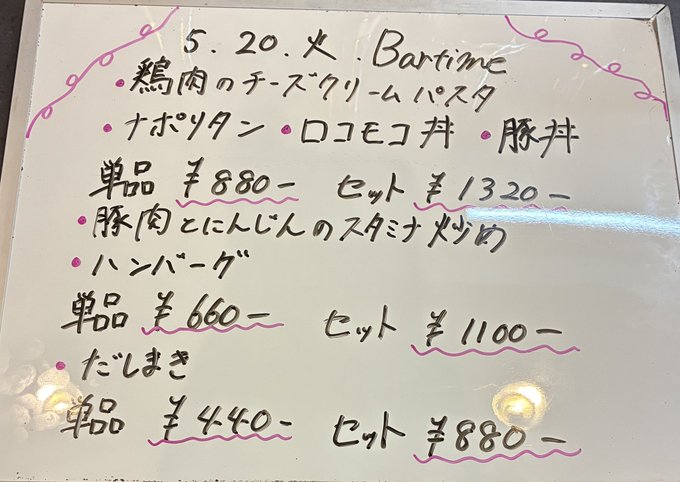 5.20.火.Bartime
・鶏肉のチーズクリームパスタ
・ナポリタン ・ロコモコ丼 ・豚丼
単品 ¥880- セット ¥1320-
・豚肉とにんじんのスタミナ炒め
・ハンバーグ
単品 ¥660- セット ¥1100-
・だしまき
単品 ¥440- セット ¥880-